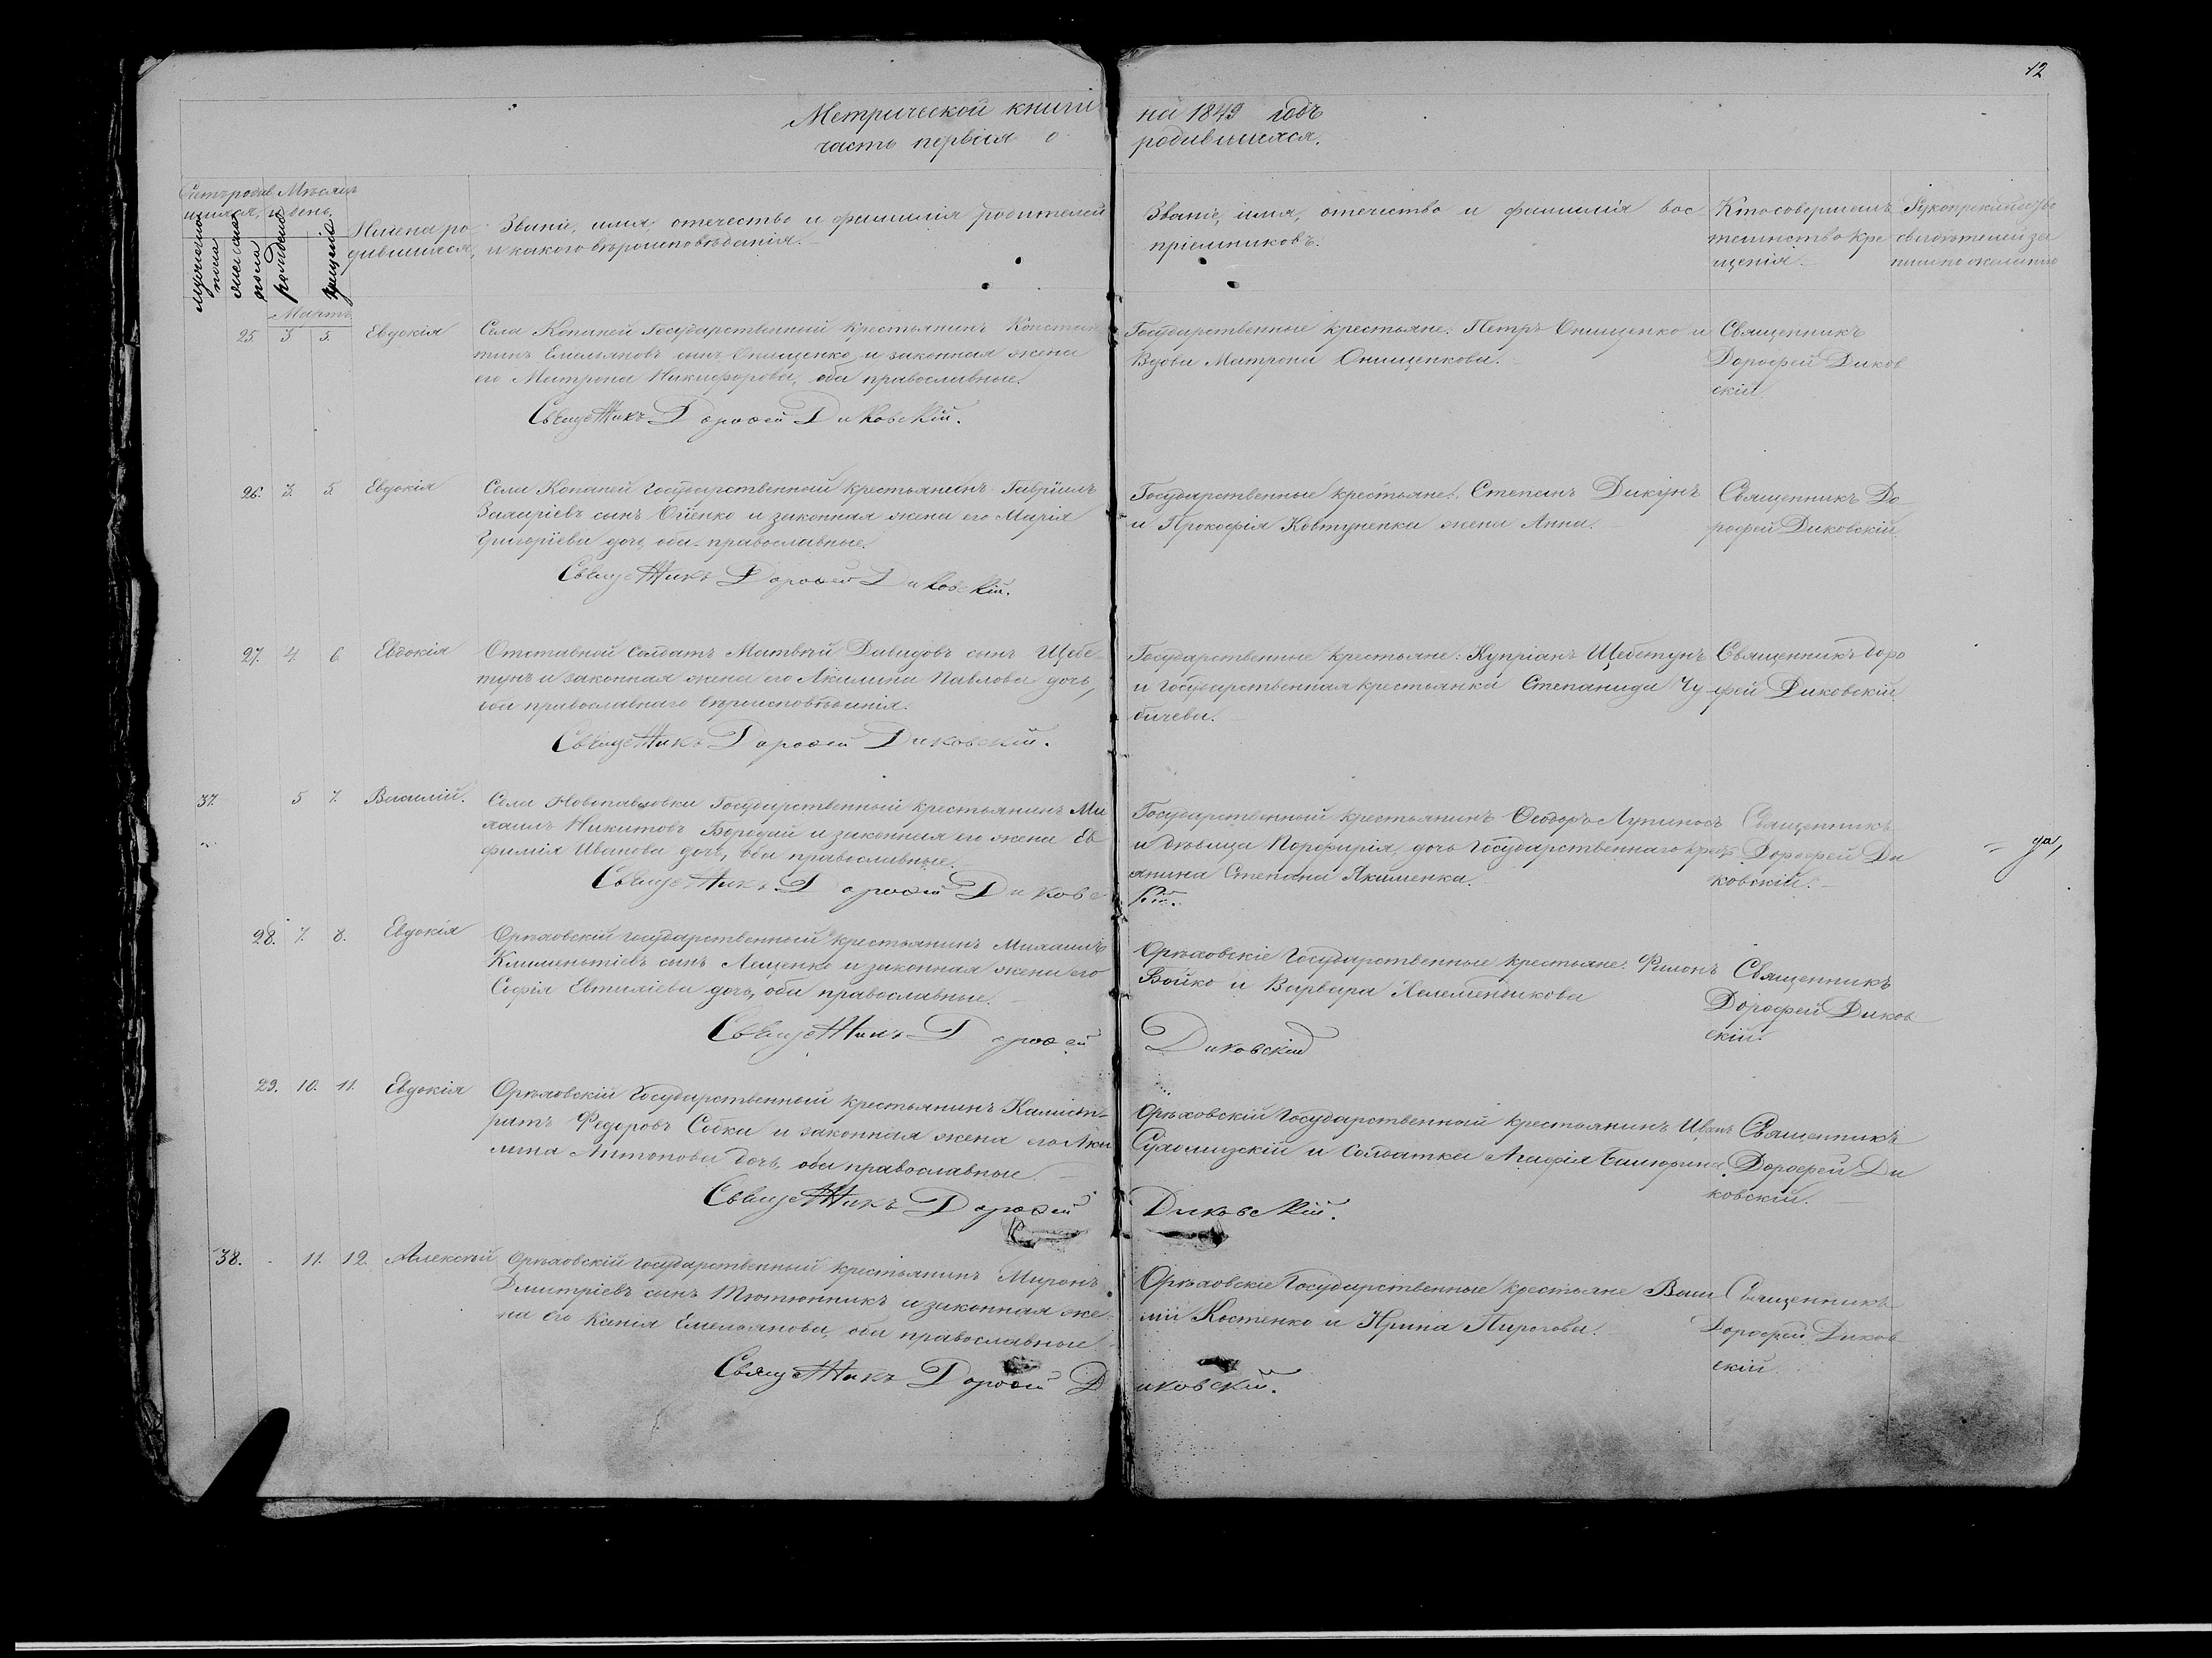 12
Метрической книги на 1849 годъ
часть первая о родившихся.
Счетъ родив Мѣсяцъ
шихся, и день.
мужеска пола
женска пола
рожденія
крещенія
Имена ро-
дившихся,
Званіе, имя, отечество и фамилія родителей
и какого вѣроисповѣданія.
Званіе, имя, отечество и фамилія вос-
пріемниковъ.
Кто совершалъ
таинство кре
щенія
Рукоприкладство
свидѣтелей за
писи по желанію
Мартъ
25. 3 5. Евдокія
Села Копаней Государственный крестьянинъ Констан
тинъ Емельяновъ сынъ Онищенко и законная жена
его Матрона Никифорова, оба православные.
Священникъ Дорофей Диковскій.
Государственные крестьяне: Петръ Онищенко и
Вдова Матрона Онищенкова.
Священникъ
Дорофей Диков
скій
26. 3. 5. Евдокія
Села Копаней Государственный крестьянинъ Гавріилъ
сынъ и законная жена его Марія
Григоріева дочь, оба православные.
Священникъ Дорофей Диковскій.
Государственные крестьяне: Степанъ Дикунъ
и Прокофія Ковтуненка жена Анна.
Священникъ До-
рофей Диковскій
27. 4. 6. Евдокія
Отставной Солдатъ Матвѣй Давидовъ сынъ Щебе
тунъ и законная жена его Акилина Павлова дочь,
оба православнаго вѣроисповѣданія.
Священникъ Дорофей Диковскій.
Государственные крестьяне: Купріанъ Щебетунъ
и Государственная крестьянка Степанида Чу
бичева.
Священникъ Доро
фей Диковскій
37. 5 7. Василій.
Села Новопавловки Государственный крестьянинъ Ми
хаилъ Никитовъ Бородай и законная его жена Ев
фимія Иванова дочь, оба православные.
Священникъ Дорофей Диковс
кій.
Государственный крестьянинъ Феодоръ Лупиносъ
и дѣвица Порфирія, дочь Государственнаго крест
янина Степана Якименка.
Священникъ
Дорофей Ди
ковскій.
28. 7. 8. Евдокія
Орѣховскій государственный крестьянинъ Михаилъ
Климентіевъ сынъ Лещенко и законная жена его
Софія Евтихіева дочь, оба православные.
Священникъ Дорофей Диковскій
Орѣховскіе Государственные крестьяне: Филонъ
Бойко и Варвара
Священникъ
Дорофей Диков
скій.
29. 10. 11. Евдокія
Орѣховскій Государственный крестьянинъ Калист-
ратъ Федоровъ Собка и законная жена его Аки
лина Антонова дочь, оба православные
Священникъ Дорофей Диковскій.
Орѣховскій Государственный крестьянинъ Иванъ
и Солдатка Агафія
Священникъ
Дорофей Ди
ковскій.
38. 11. 12. Алексѣй
Орѣховскій государственный крестьянинъ Миронъ
Дмитріевъ сынъ Тютюнникъ и законная же
на его Ксенія Емельянова, оба православные
Священникъ Дорофей Диковскій.
Орѣховскіе Государственные крестьяне Васи
лій Костенко и Ирина Пирогова.
Священникъ
Дорофей Диков
скій